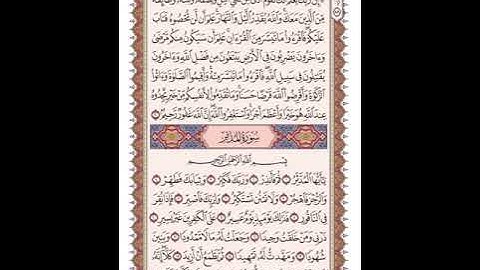 مِّنَ ٱلَّذِينَ مَعَكَ وَٱللَّهُ يُقَدِّرُ ٱلَّيْلَ وَٱلنَّهَارَ عَلِمَ أَن لَّن تُحْصُوهُ فَتَابَ
عَلَيْكُمْ فَٱقْرَءُوا۟ مَا تَيَسَّرَ مِنَ ٱلْقُرْءَانِ عَلِمَ أَن سَيَكُونُ مِنكُم مَّرْضَىٰ
وَءَاخَرُونَ يَضْرِبُونَ فِى ٱلْأَرْضِ يَبْتَغُونَ مِن فَضْلِ ٱللَّهِ وَءَاخَرُونَ
يُقَٰتِلُونَ فِى سَبِيلِ ٱللَّهِ فَٱقْرَءُوا۟ مَا تَيَسَّرَ مِنْهُ وَأَقِيمُوا۟ ٱلصَّلَوٰةَ وَءَاتُوا۟
ٱلزَّكَوٰةَ وَأَقْرِضُوا۟ ٱللَّهَ قَرْضًا حَسَنًا وَمَا تُقَدِّمُوا۟ لِأَنفُسِكُم مِّنْ خَيْرٍ تَجِدُوهُ
عِندَ ٱللَّهِ هُوَ خَيْرًا وَأَعْظَمَ أَجْرًا وَٱسْتَغْفِرُوا۟ ٱللَّهَ إِنَّ ٱللَّهَ غَفُورٌ رَّحِيمٌۢ
سُورَةُ المُدَّثِّرِ
بِسْمِ ٱللَّهِ ٱلرَّحْمَٰنِ ٱلرَّحِيمِ
يَٰٓأَيُّهَا ٱلْمُدَّثِّرُ قُمْ فَأَنذِرْ وَرَبَّكَ فَكَبِّرْ وَثِيَابَكَ فَطَهِّرْ
وَٱلرُّجْزَ فَٱهْجُرْ وَلَا تَمْنُن تَسْتَكْثِرُ وَلِرَبِّكَ فَٱصْبِرْ فَإِذَا نُقِرَ
فِى ٱلنَّاقُورِ فَذَٰلِكَ يَوْمَئِذٍ يَوْمٌ عَسِيرٌ عَلَى ٱلْكَٰفِرِينَ غَيْرُ يَسِيرٍ
ذَرْنِى وَمَنْ خَلَقْتُ وَحِيدًا وَجَعَلْتُ لَهُۥ مَالًا مَّمْدُودًا وَبَنِينَ
شُهُودًا وَمَهَّدتُّ لَهُۥ تَمْهِيدًا ثُمَّ يَطْمَعُ أَنْ أَزِيدَ كَلَّآ إِنَّهُۥ